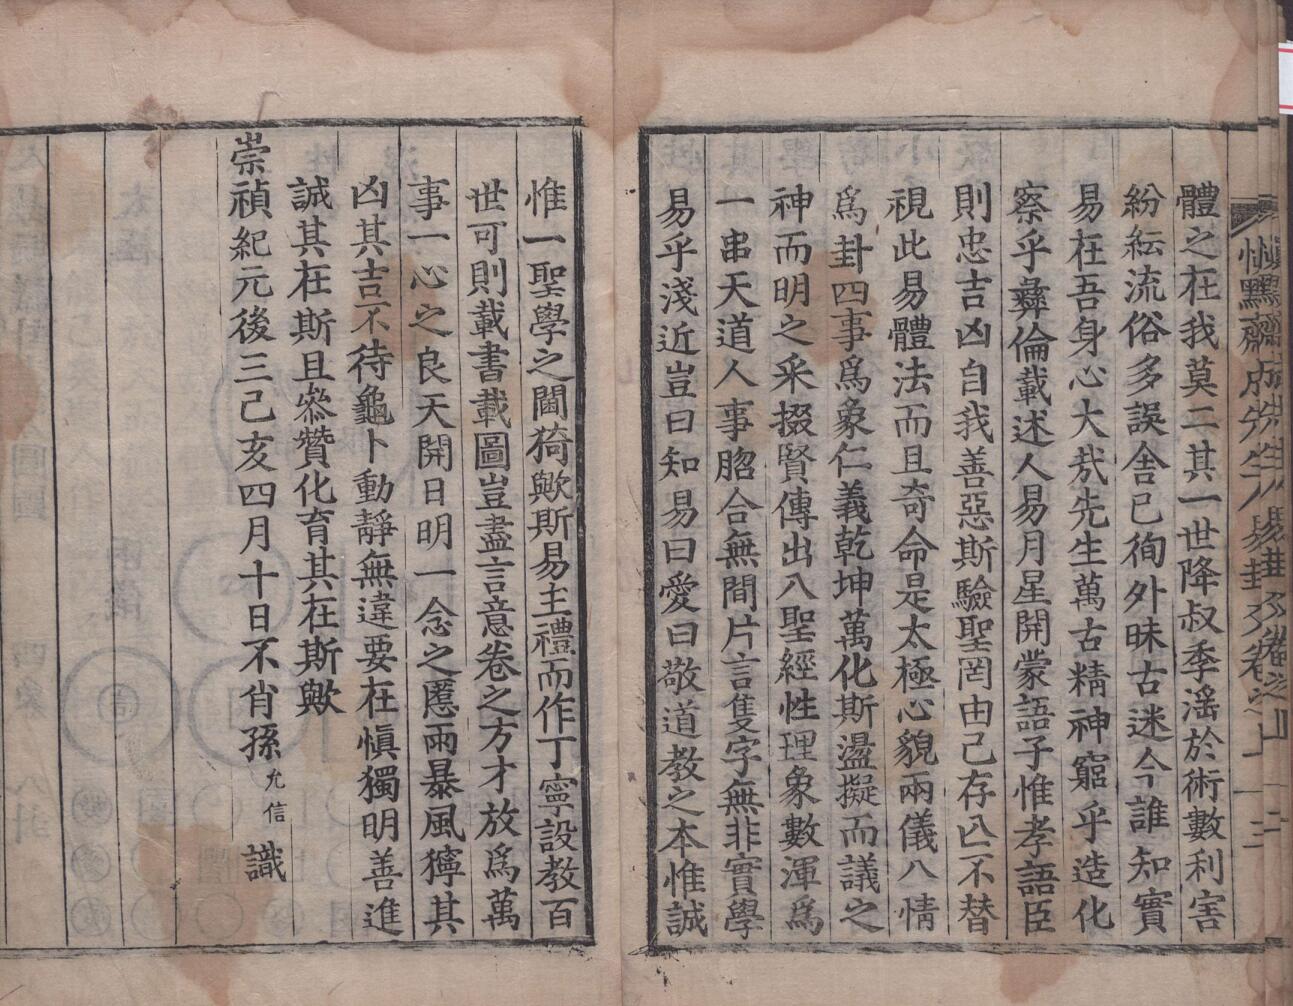 體之在我莫二其一世降叔季滛於術數利害
紛紜流俗多誤舍已徇外昧古迷今誰知實
易在吾身心大㢤先生萬古精神窮乎造化
察乎彝倫載述人易月星開蒙語子惟孝語臣
則忠吉凶自我善惡斯驗聖罔由己存亾不替
視此易體法而且奇命是太極心貌兩儀八情
爲卦四事爲象仁義乾坤萬化斯盪擬而議之
神而明之采掇賢傳出入聖經性理象數渾爲
一串天道人事脗合無間片言隻字無非實學
易乎淺近豈曰知易曰愛曰敬道教之本惟誠
惟一聖學之閫猗歟斯易主禮而作丁寧設教百
世可則載書載圖豈盡言意卷之方才放爲萬
事一心之良天開日明一念之慝雨暴風獰其
凶其吉不待龜卜動靜無違要在愼獨明善進
誠其在斯且叅贊化育其在斯歟
崇禎紀元後三己亥四月十日不肖孫允信識
愼黙齋成先生人易卦